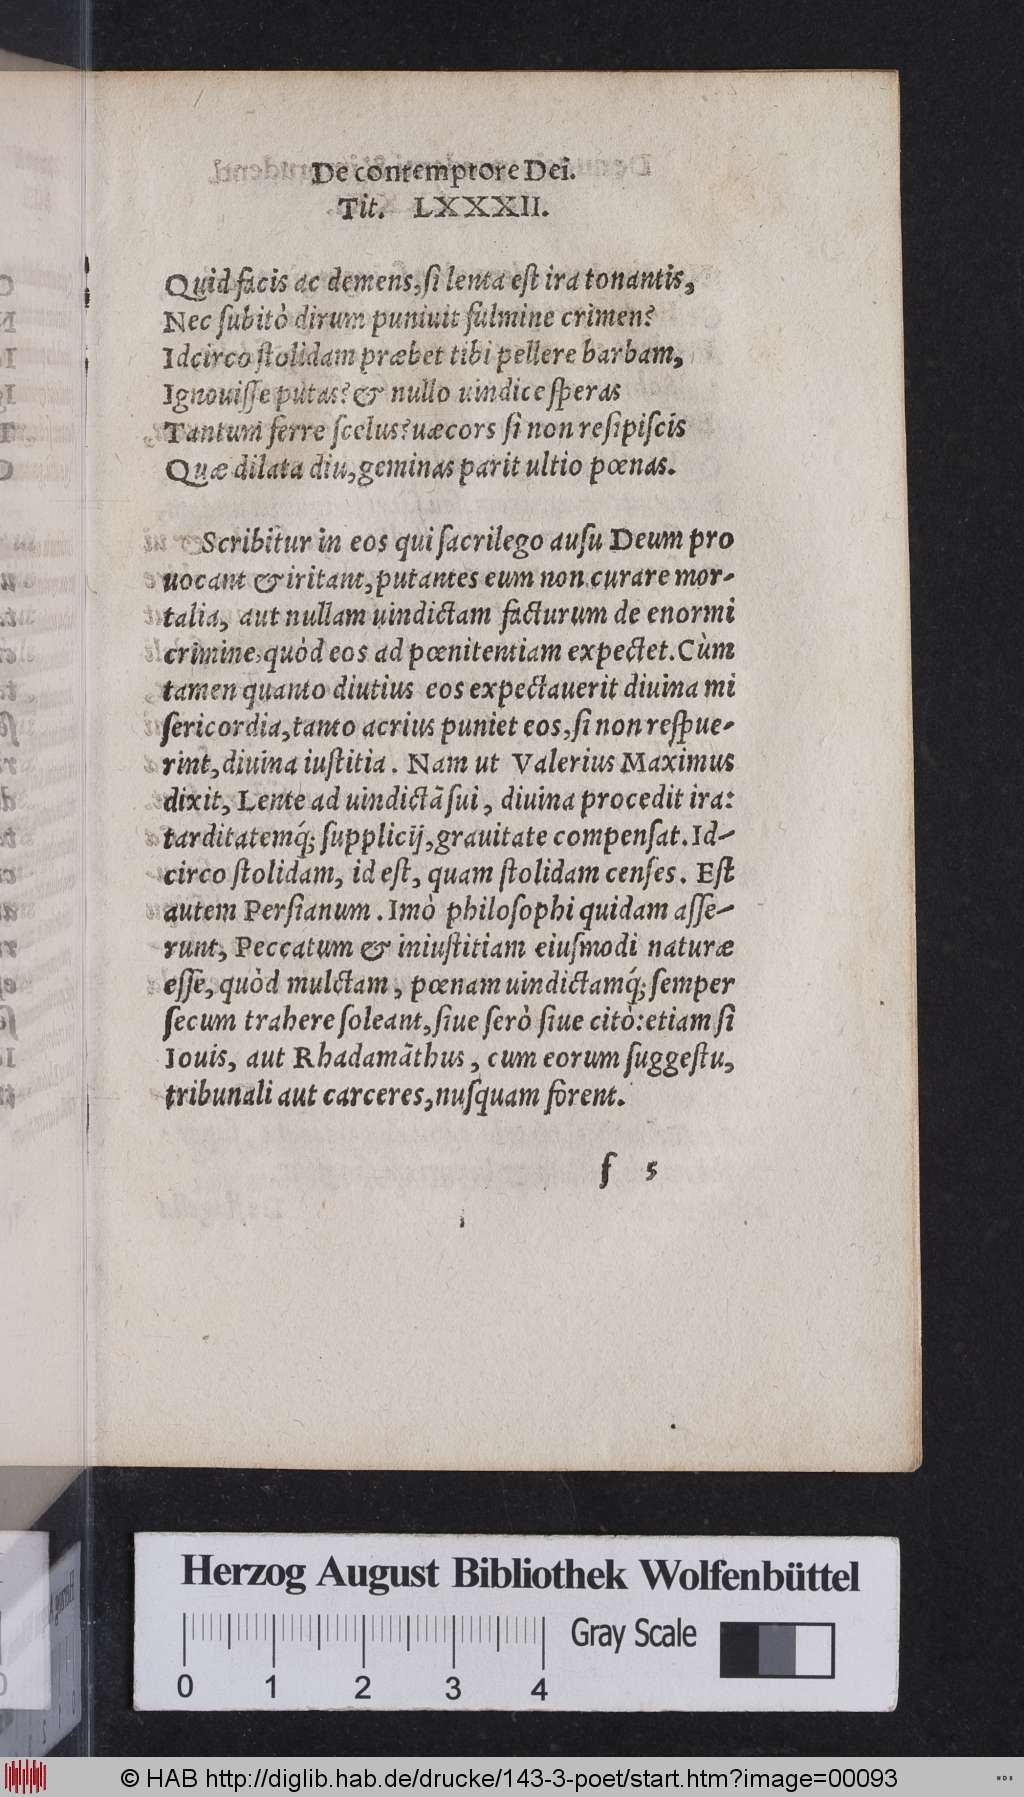 De contemptore Dei.
Tit. LXXXII.
Quid facis ac demens, si lenta est ira tonantis,
Nec subitò dirum puniuit fulmine crimen?
Idcirco stolidam præbet tibi pellere barbam,
Ignouisse putas? & nullo uindice speras
Tantum ferre scelus? uæcors si non resipiscis
Quæ dilata diu, geminas parit ultio pœnas.
Scribitur in eos qui sacrilego ausu Deum pro
uocant & iritant, putantes eum non curare mor-
talia, aut nullam uindictam facturum de enormi
crimine, quòd eos ad pœnitentiam expectet. Cùm
tamen quanto diutius eos expectauerit diuina mi
sericordia, tanto acrius puniet eos, si non respue-
rint, diuina iustitia. Nam ut Valerius Maximus
dixit, Lente ad uindictã sui, diuina procedit ira:
tarditatemq́; supplicij, grauitate compensat. Id-
circo stolidam, id est, quam stolidam censes. Est
autem Persianum. Imò philosophi quidam asse-
runt, Peccatum & iniustitiam eiusmodi naturæ
esse, quòd mulctam, pœnam uindictamq́; semper
secum trahere soleant, siue serò siue citò: etiam si
Iouis, aut Rhadamãthus, cum eorum suggestu,
tribunali aut carceres, nusquam forent.
f 5
Herzog August Bibliothek Wolfenbüttel
Gray Scale
0 1 2 3 4
© HAB http://diglib.hab.de/drucke/143-3-poet/start.htm?image=00093